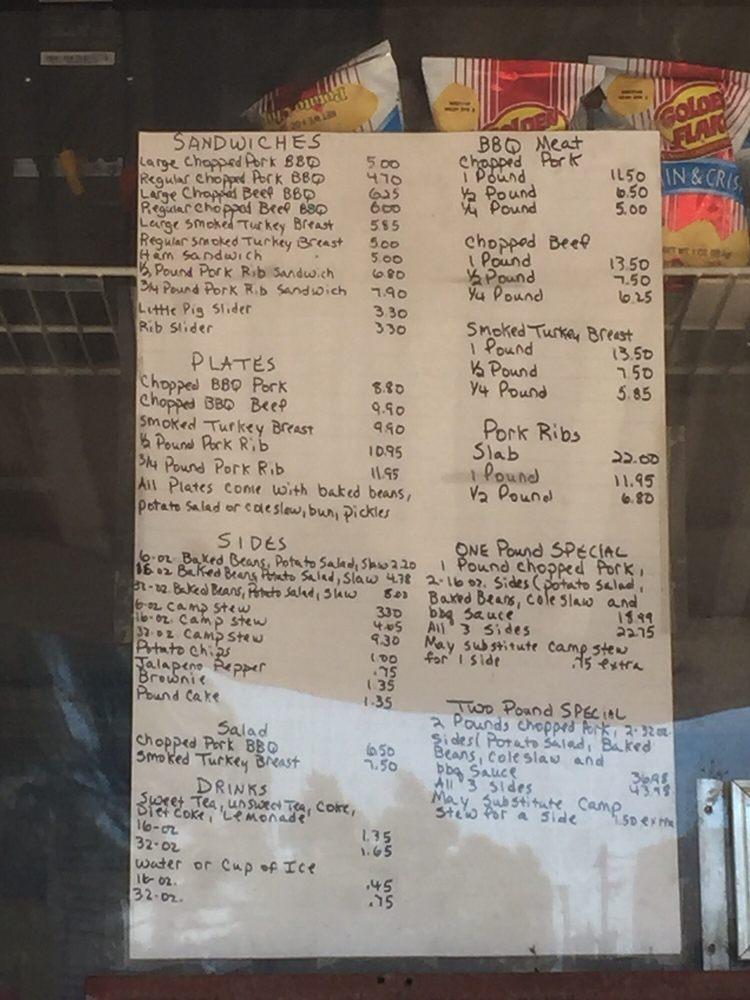 GOLDEN
FLAKE
IN & CRIS
SANDWICHES
Large Chopped Pork BBQ 5.00
Regular Chopped Pork BBQ 4.70
Large Chopped Beef BBQ 6.25
Regular Chopped Beef BBQ 6.00
Large Smoked Turkey Breast 5.85
Regular Smoked Turkey Breast 5.00
Ham Sandwich 5.00
1/2 Pound Pork Rib Sandwich 6.80
3/4 Pound Pork Rib Sandwich 7.90
Little Pig Slider 3.30
Rib Slider 3.30
PLATES
Chopped BBQ Pork 8.80
Chopped BBQ Beef 9.90
Smoked Turkey Breast 9.90
1/2 Pound Pork Rib 10.95
3/4 Pound Pork Rib 11.95
All Plates come with baked beans,
potato salad or coleslaw, bun, pickles
SIDES
6-oz. Baked Beans, Potato Salad, Slaw 2.20
16 oz Baked Beans Potato Salad, Slaw 4.78
32-oz. Baked Beans, Potato Salad, Slaw 8.00
6-oz Camp Stew 3.30
16-oz. Camp Stew 4.65
32-oz Camp Stew 9.30
Potato Chips 1.00
Jalapeno Pepper .75
Brownie 1.35
Pound Cake 1.35
Salad
Chopped Pork BBQ 6.50
Smoked Turkey Breast 7.50
DRINKS
Sweet Tea, Unsweet Tea, Coke,
Diet Coke, Lemonade
16-oz 1.35
32-oz 1.65
Water or Cup of Ice
16-oz. .45
32-oz. .75
BBQ Meat
Chopped Pork
1 Pound 11.50
1/2 Pound 6.50
1/4 Pound 5.00
Chopped Beef
1 Pound 13.50
1/2 Pound 7.50
1/4 Pound 6.25
Smoked Turkey Breast
1 Pound 13.50
1/2 Pound 7.50
1/4 Pound 5.85
Pork Ribs
Slab 22.00
1 Pound 11.95
1/2 Pound 6.80
ONE Pound SPECIAL
1 Pound chopped Pork,
2-16 oz. Sides (potato salad,
Baked Beans, Cole Slaw and
bbq Sauce 18.99
All 3 sides 22.75
May substitute Camp stew
for 1 side .75 extra
Two Pound SPECIAL
2 Pounds chopped Pork, 2-32oz.
Sides (Potato Salad, Baked
Beans, Coleslaw and
bbq Sauce 36.98
All 3 Sides 43.98
May Substitute Camp
Stew for a side 1.50 extra